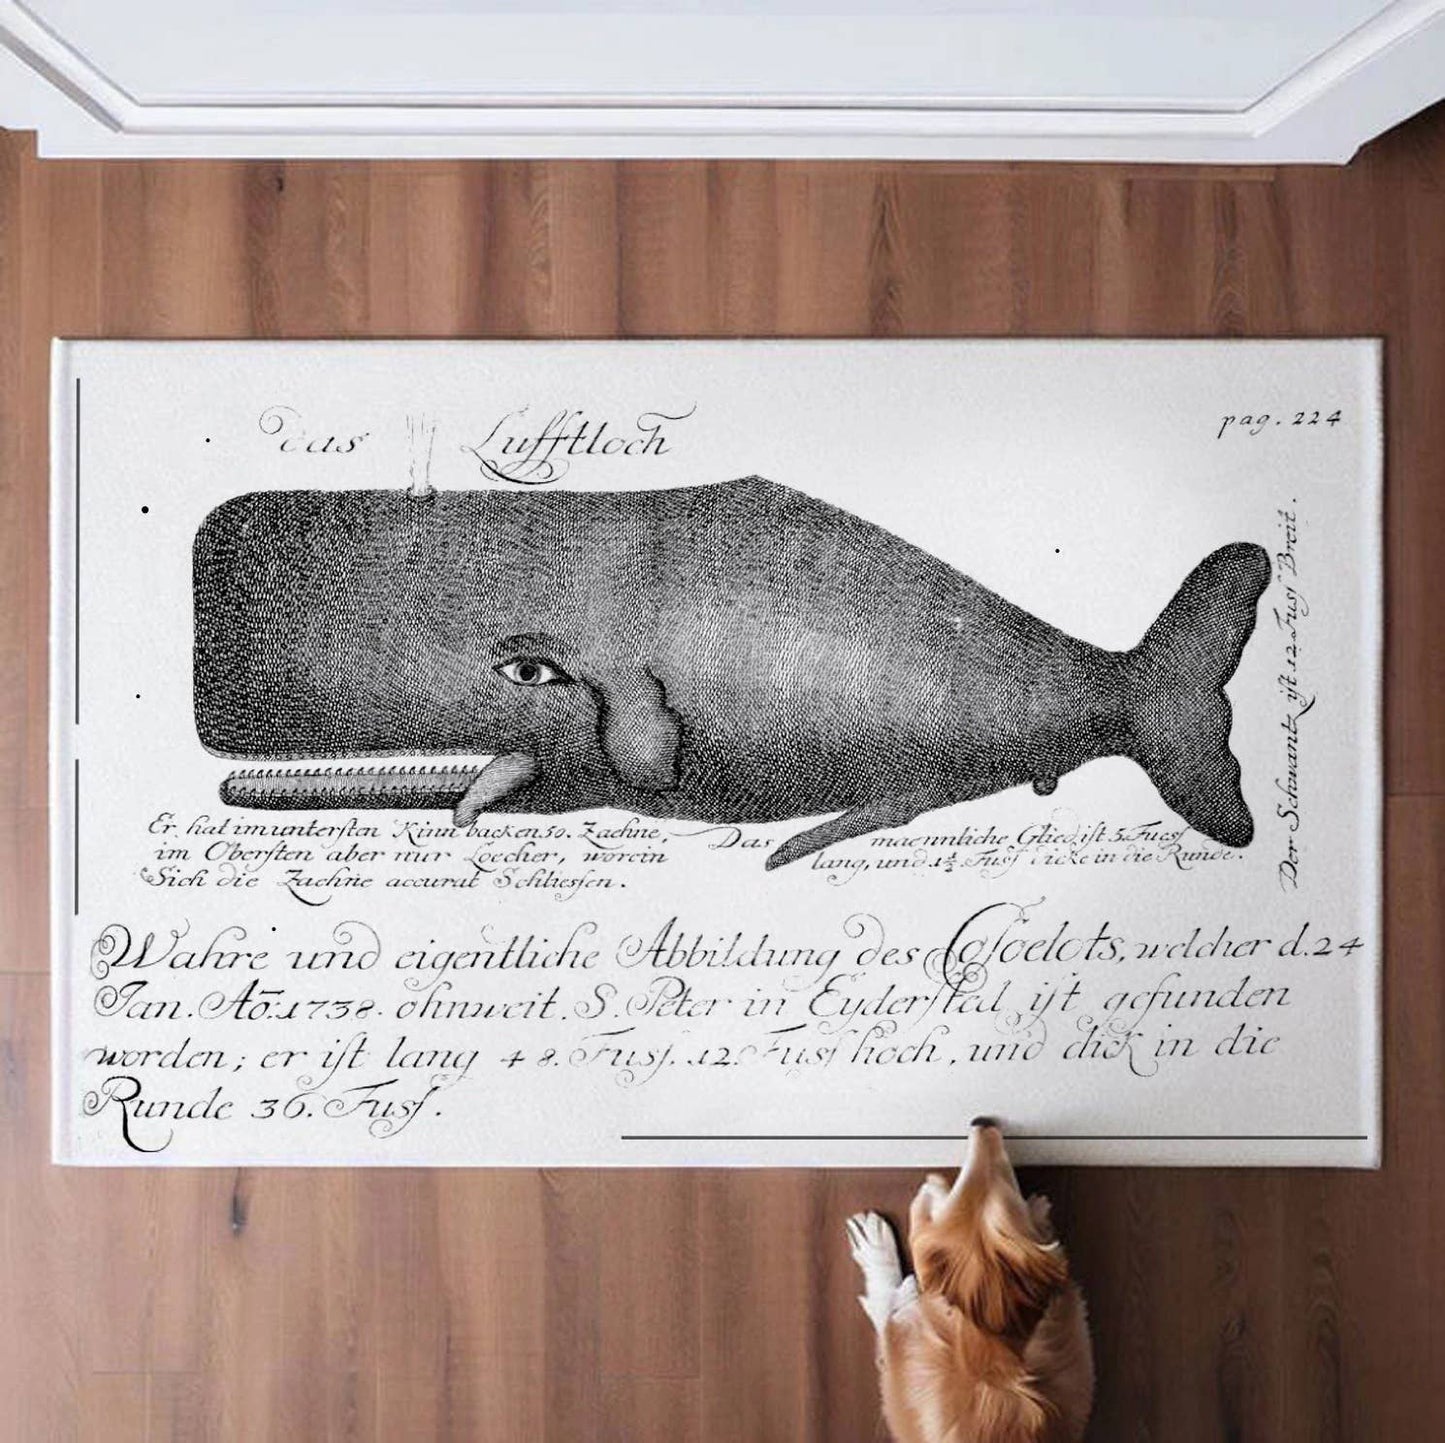 das Lufftloch
pag. 224
Der Schwantz ist 12. Fuss Breit.
Er hat im untersten Kinn backen 50. Zaehne,
im Obersten aber nur Loecher, worein
Sich die Zaehne accurat Schliessen.
Das maennliche Glied ist 5. Fuess
lang, und 1½ Fuss dicke in die Runde.
Wahre und eigentliche Abbildung des Cosoelots, welcher d. 24
Jan. Aō: 1738. ohnweit S. Peter in Eydersted ist gefunden
worden; er ist lang 48. Fuss. 12. Fuss hoch, und dick in die
Runde 36. Fuss.